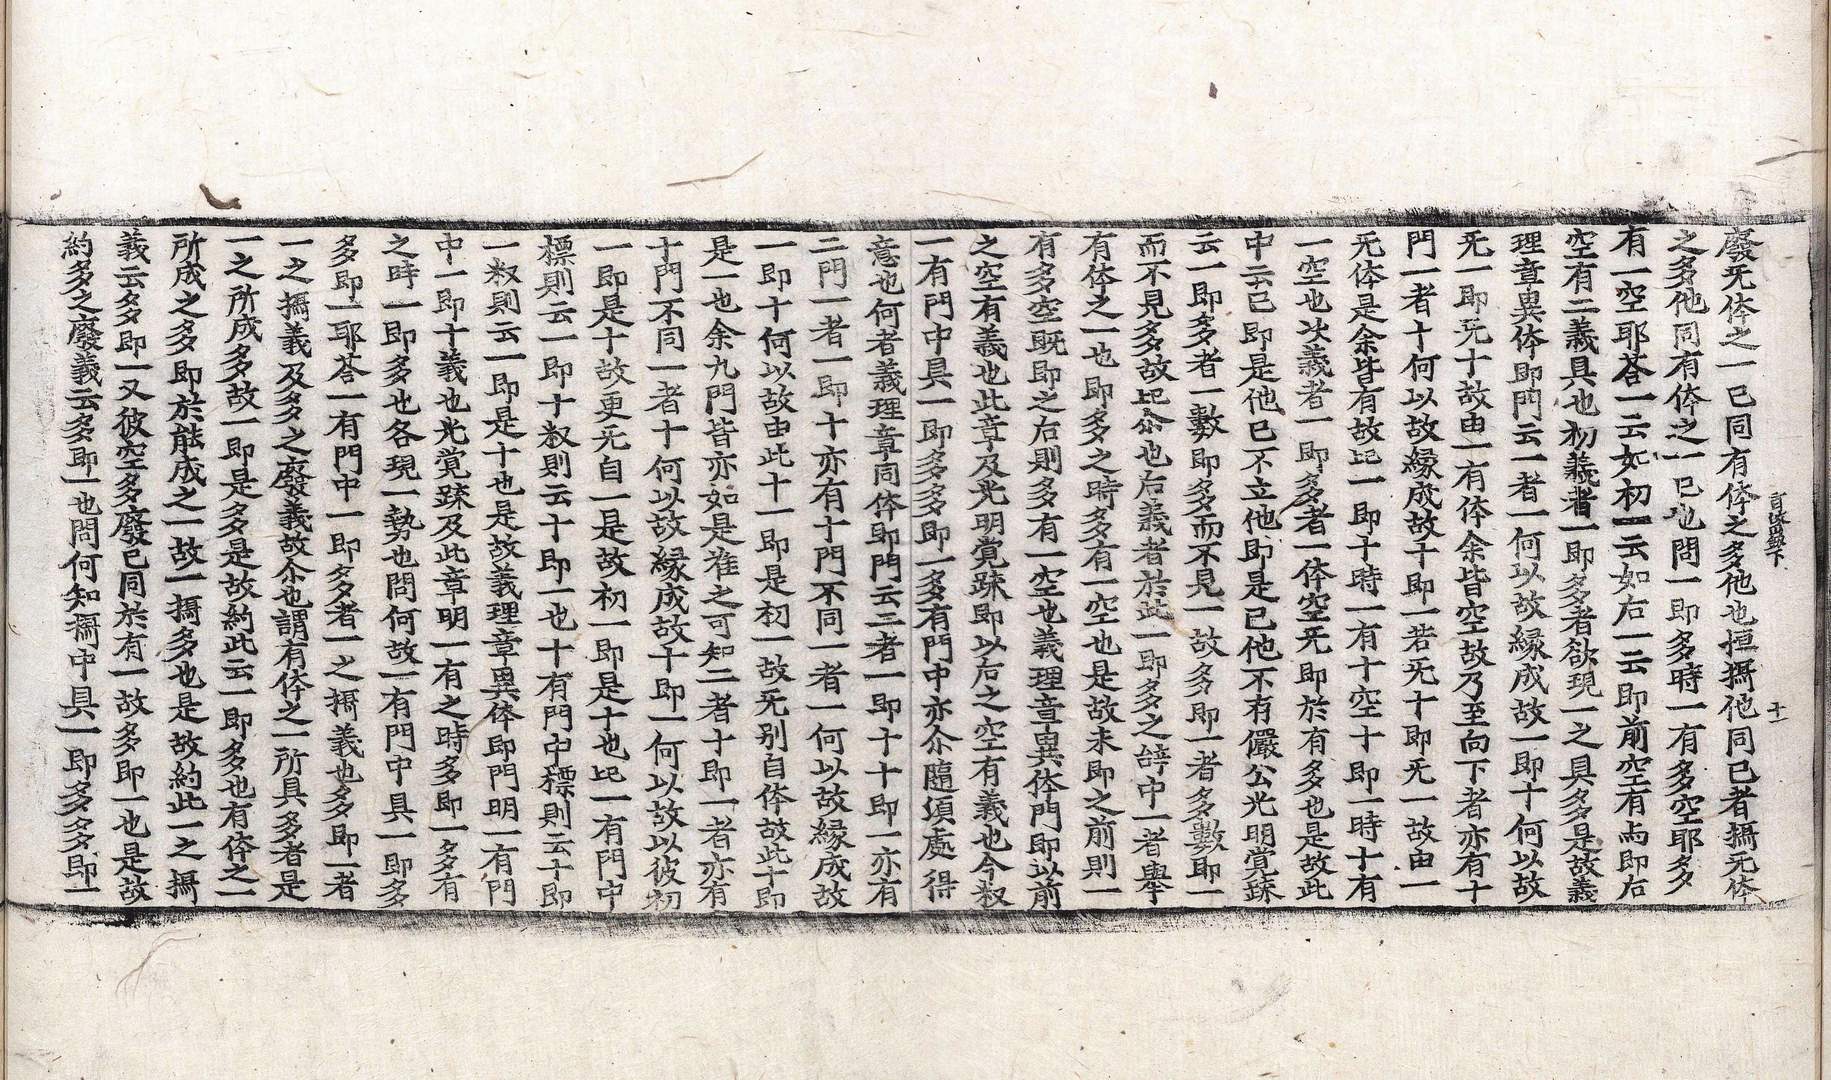 廢旡体之一已同有体之多他也恒攝他同已者攝旡体
之多他同有体之一已也問一即多時一有多空耶多
有一空耶荅一云如初一云如右一云即前空有兩即右
空有二義具也初義者一即多者欲現一之具多是故義
理章異体即門云一者一何以故緣成故一即十何以故
旡一即旡十故由一有体余皆空故乃至向下者亦有十
門一者十何以故緣成故十即一若旡十即旡一故由一
旡体是余皆有故此一即十時一有十空十即一時十有
一空也次義者一即多者一体空旡即於有多也是故此
中云已即是他已不立他即是已他不有儼公光明覺䟽
云一即多者一數即多而不見一故多即一者多數即一
而不見多故此尒也右義者於此一即多之辝中一者擧
有体之一也即多之時多有一空也是故未即之前則一
有多空旣即之右則多有一空也義理章異体門即以前
之空有義也此章及光明覺䟽即以右之空有義也今釈
一有門中具一即多多即一多有門中亦尒隨須處得
意也何者義理章同体即門云二者一即十十即一亦有
二門一者一即十亦有十門不同一者一何以故緣成故
一即十何以故由此十一即是初一故旡别自体故此十即
是一也余九門皆亦如是准之可知二者十即一者亦有
十門不同一者十何以故緣成故十即一何以故以彼初
一即是十故更旡自一是故初一即是十也此一有門中
標則云一即十釈則云十即一也十有門中標則云十即
一釈則云一即是十也是故義理章異体即門明一有門
中一即十義也光覺䟽及此章明一有之時多即一多有
之時一即多也各現一勢也問何故一有門中具一即多
多即一耶荅一有門中一即多者一之攝義也多即一者
一之攝義及多之廢義故尒也謂有体之一所具多者是
一之所成多故一即是多是故約此云一即多也有体之一
所成之多即於能成之一故一攝多也是故約此一之攝
義云多即一又彼空多廢已同於有一故多即一也是故
約多之廢義云多即一也問何知攝中具一即多多即一